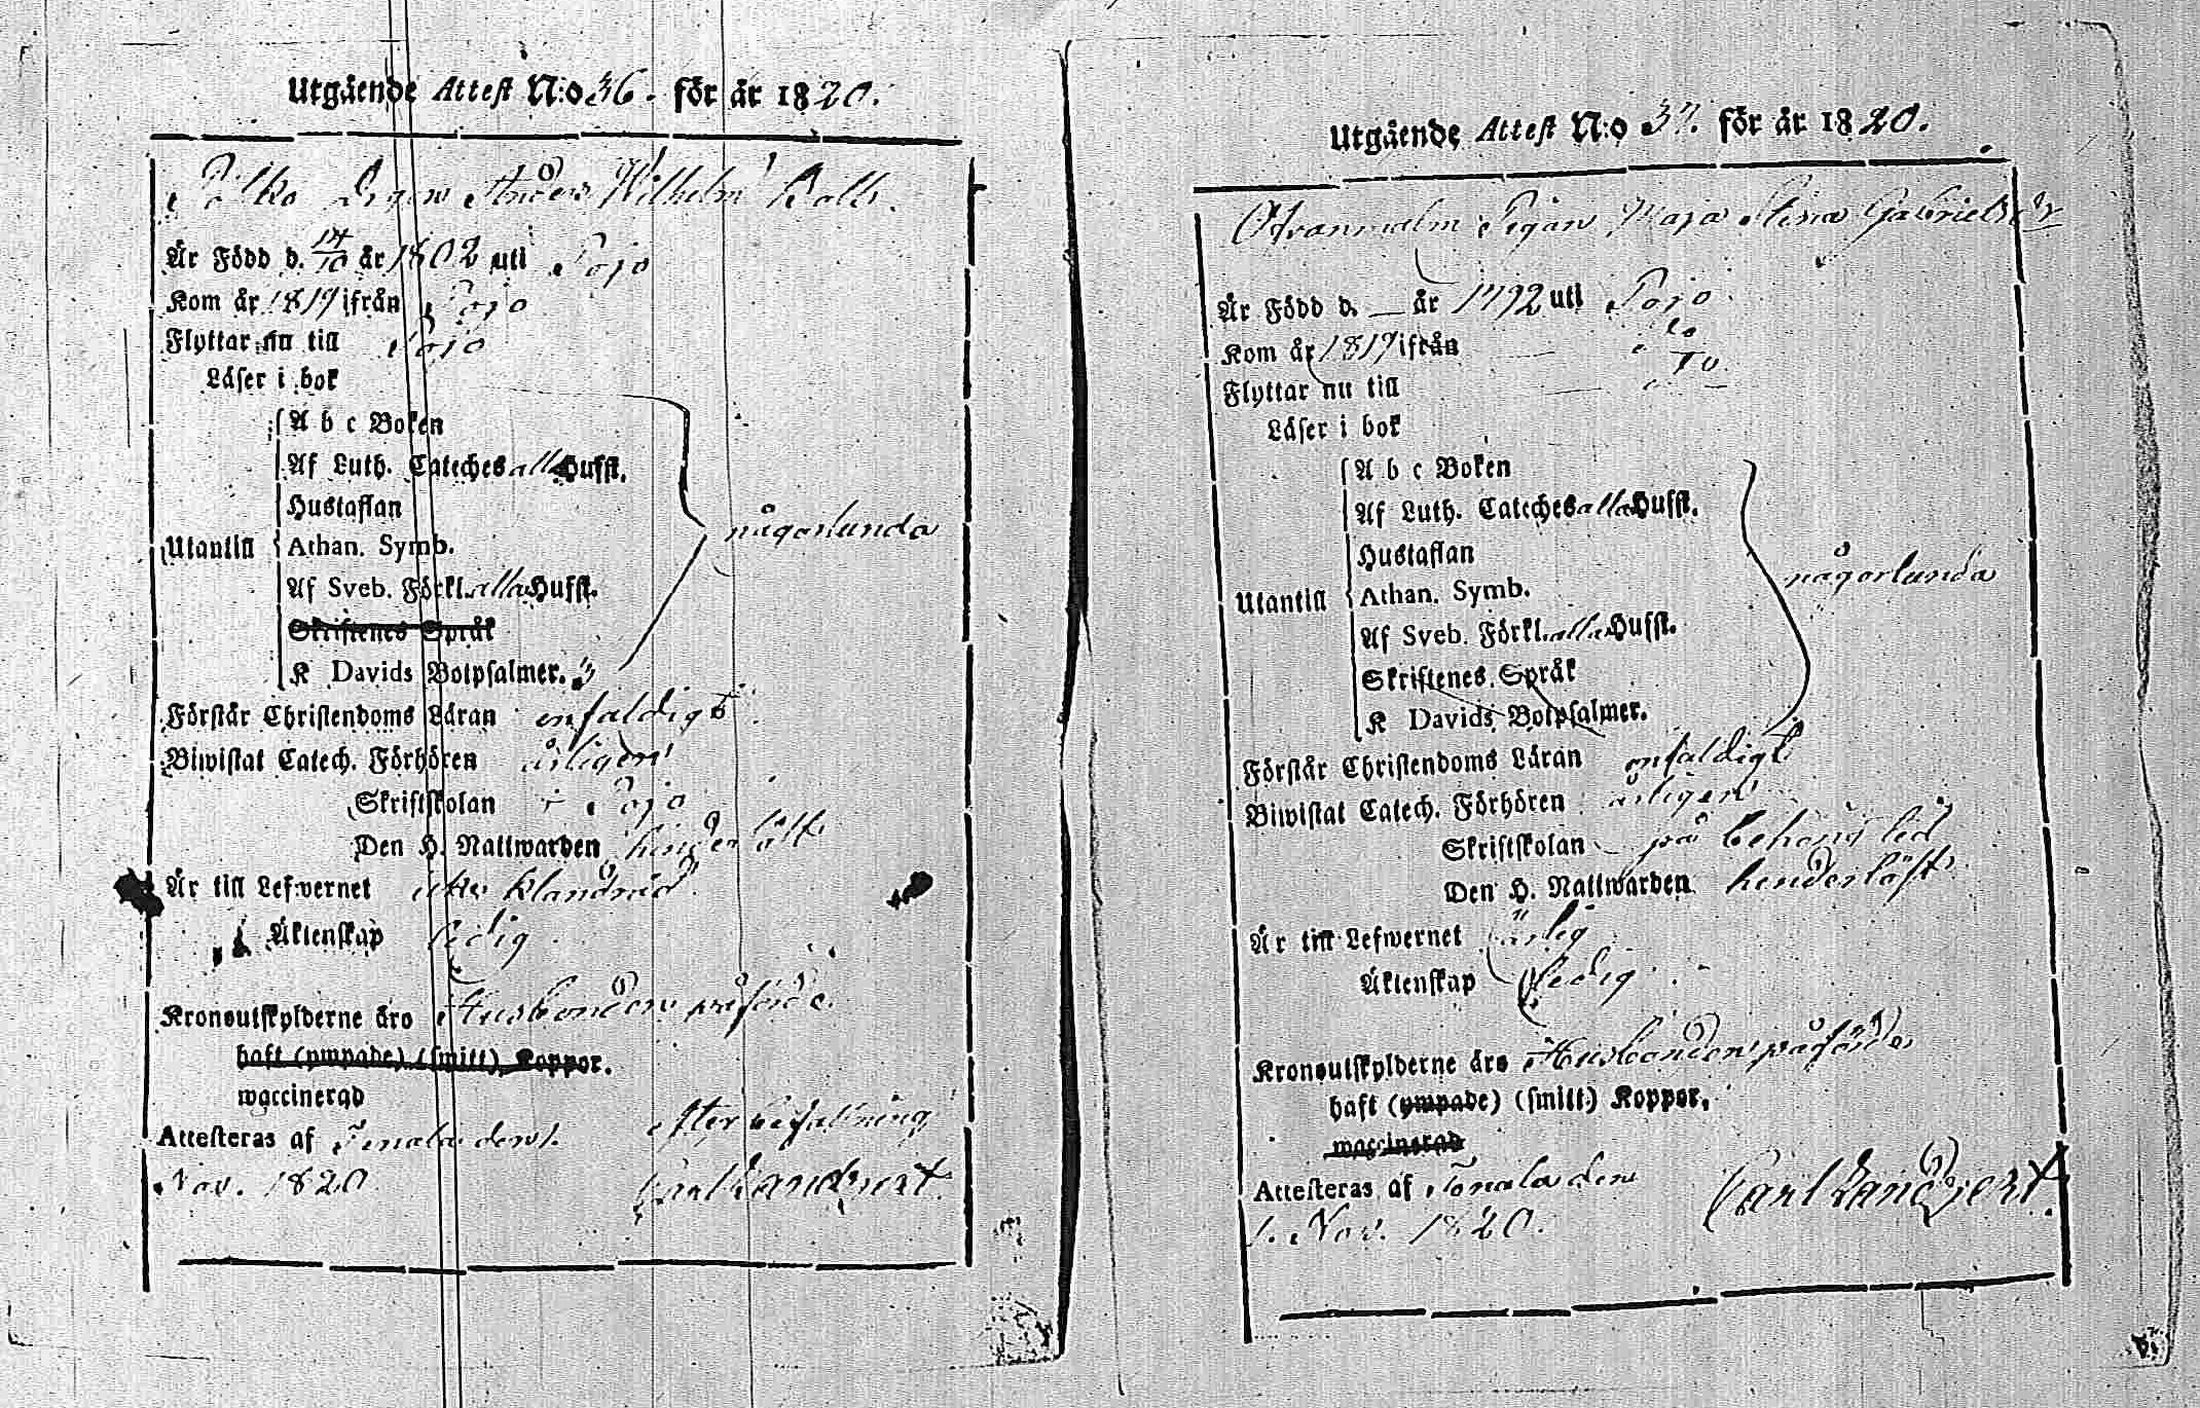 Utgående Attest N:o 36. för år 1820.
Drgen Anders Wilhelm
Är Född d. 14/10 år 1802 uti Pojo
Kom år 1819 ifrån Pojo
Flyttar nu till Pojo
Läser i bok
A b c Boken
Af Luth. Cateches alla Hufst.
Hustaflan
någorlunda
Utantill Athan. Symb.
Af Sveb. Förkl. alla Hufst.
Skriftenes Språk
K Davids Botpsalmer. 3
Förstår Christendoms Läran enfaldigt
Biwistat Catech. Förhören årligen
Skriftskolan i Pojo
Den H. Nattwarden
Är till Lefwernet icke klandrad
Äktenskap ledig
Kronoutskylderne äro Husbonden påförde.
haft (ympade) (smitt) Koppor.
waccinerad
Attesteras af Tenala den 1. efter befallning
Nov. 1820 Carl Landgert
Utgående Attest N:o 37. för år 1820.
Pigan Maja Stina Gabrielsdr
Är Född d. — år 1792 uti Pojo
Kom år 1819 ifrån — do
Flyttar nu till — do
Läser i bok
A b c Boken
Af Luth. Cateches alla Hufst.
Hustaflan
någorlunda
Utantill Athan. Symb.
Af Sveb. Förkl. alla Hufst.
Skriftenes Språk
K Davids Botpsalmer.
Förstår Christendoms Läran enfaldigt
Biwistat Catech. Förhören årligen
Skriftskolan på behörig tid
Den H. Nattwarden
Är till Lefwernet ärlig
Äktenskap ledig
Kronoutskylderne äro Husbonden påförde
haft (ympade) (smitt) Koppor.
waccinerad
Attesteras af Tenala den Carl Landgert.
1. Nov. 1820.